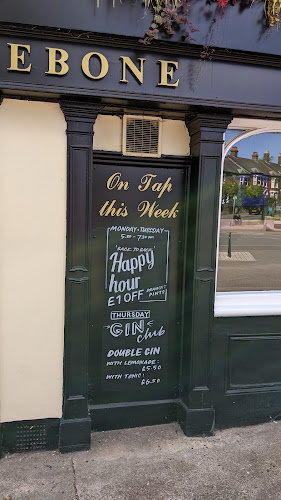 EBONE
On Tap
this Week
MONDAY-TUESDAY
5.00 - 7.30 PM
'BACK TO BACK'
Happy
hour
£1 OFF
PINTS
THURSDAY
GIN club
DOUBLE GIN
WITH LEMONADE:
£5.50
WITH TONIC:
£6.50